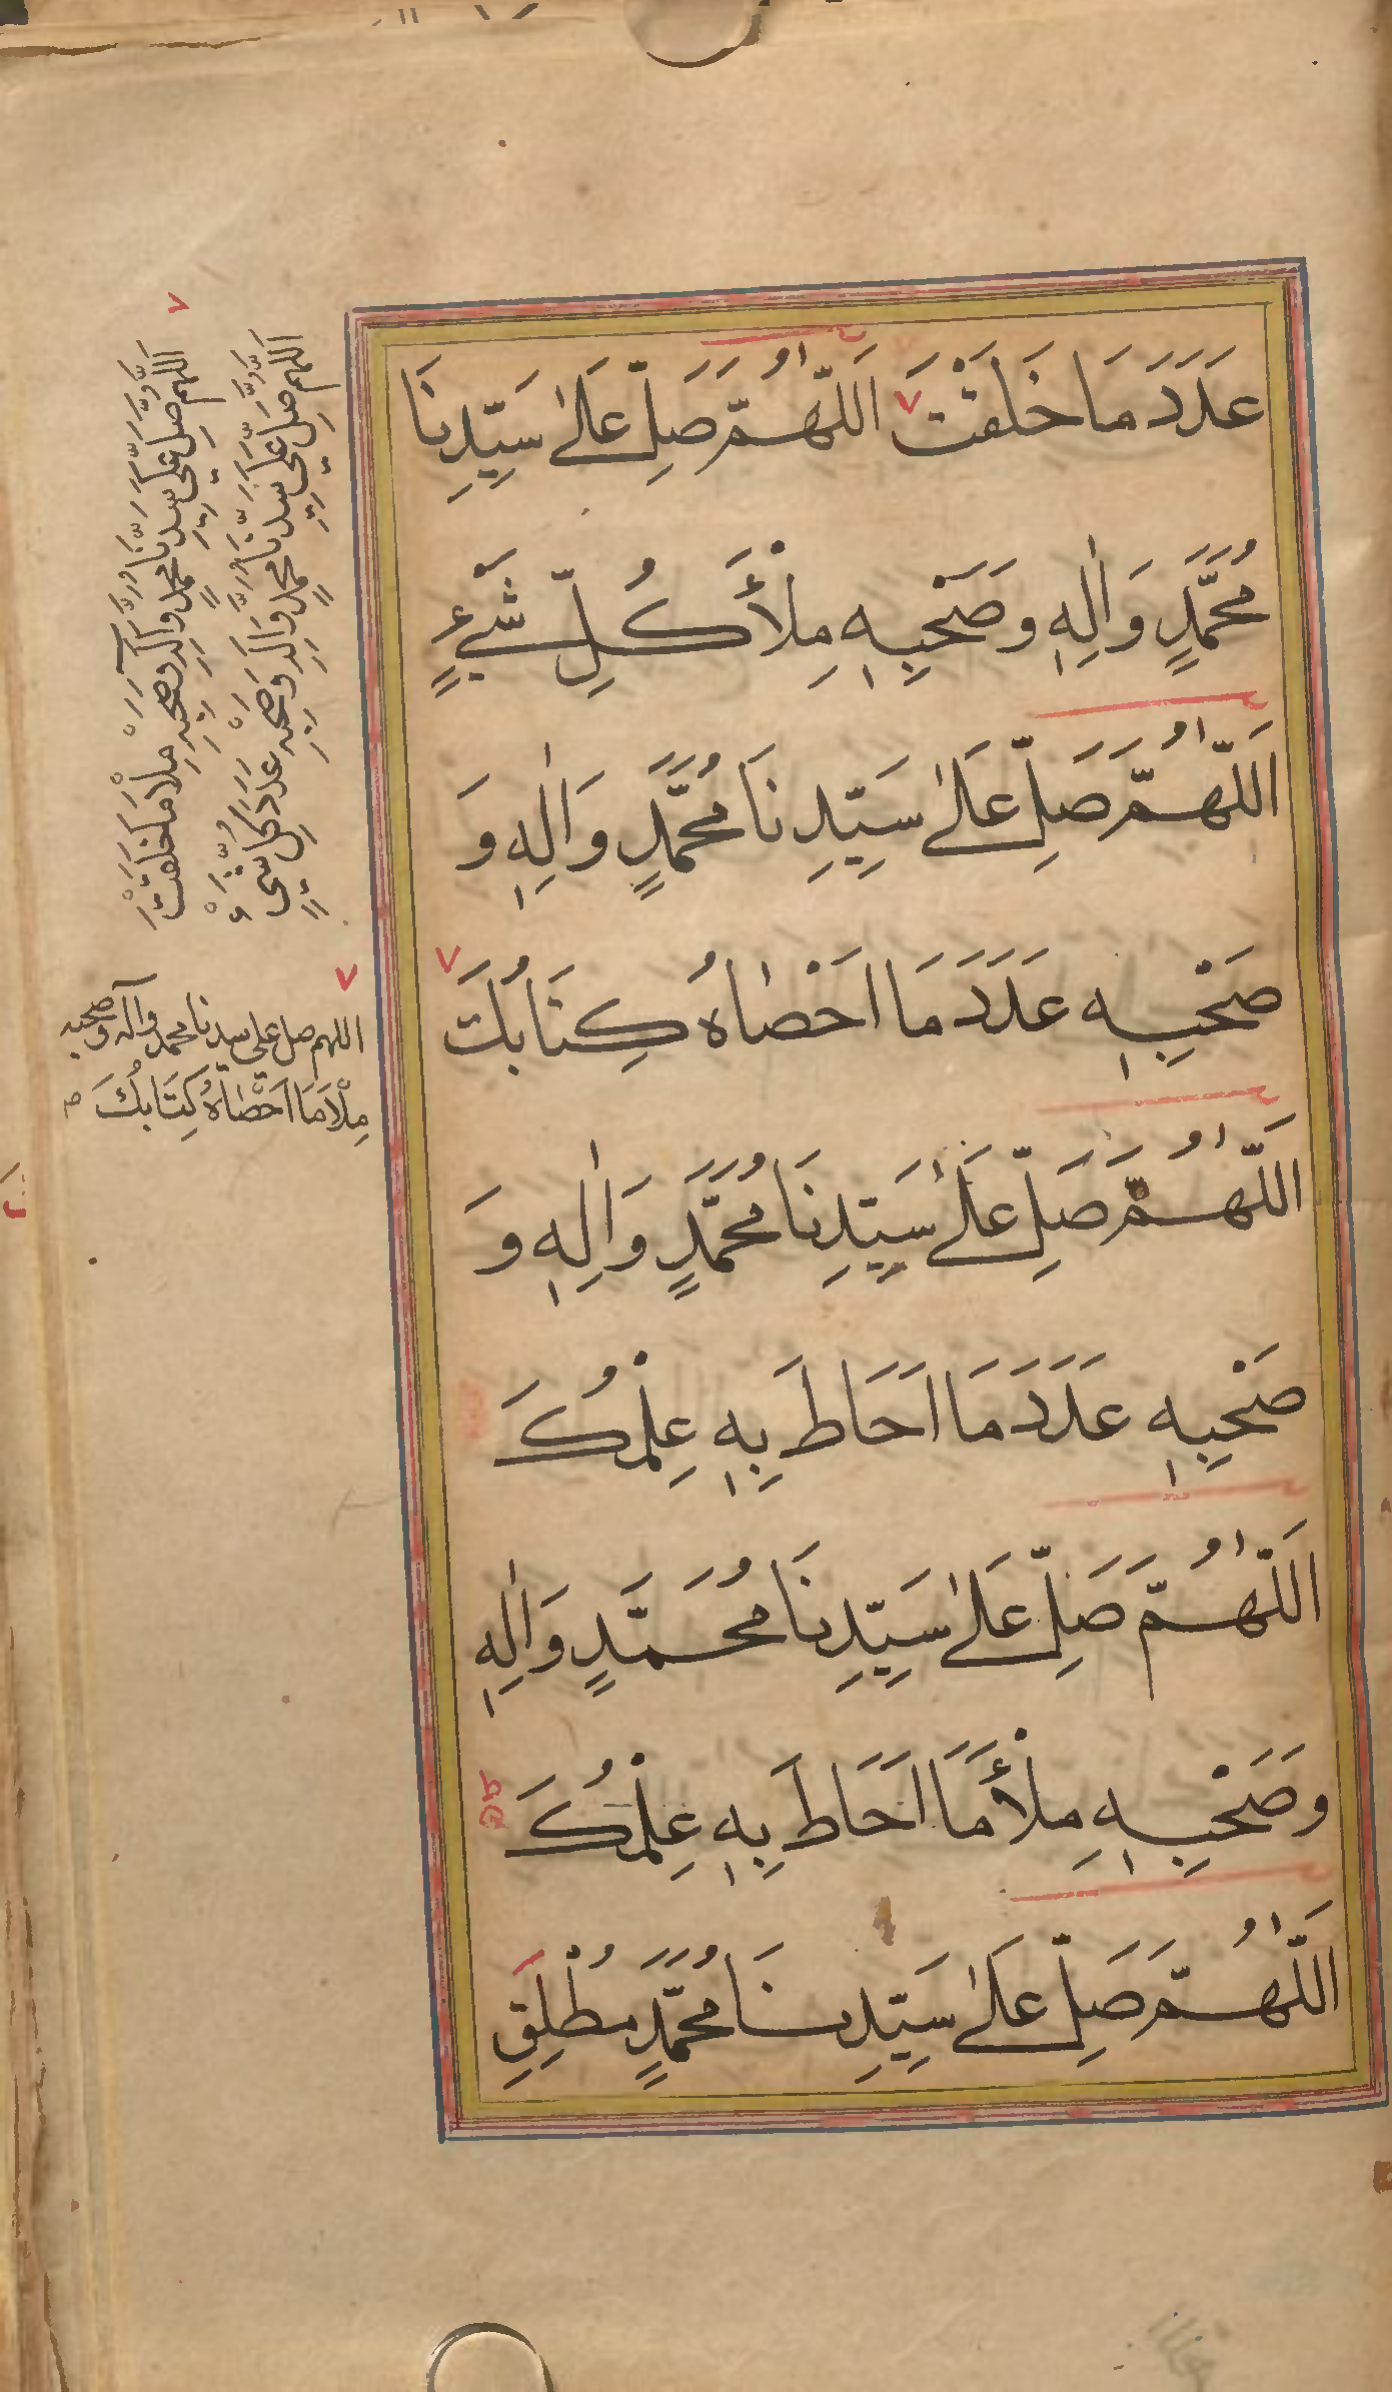 عَدَدَ مَا خَلَقْتَ اَللّٰهُمَّ صَلِّ عَلٰى سَيِّدِنَا
مُحَمَّدٍ وَاٰلِهٖ وَصَحْبِهٖ مِلْأَ كُلِّ شَيْءٍ
اَللّٰهُمَّ صَلِّ عَلٰى سَيِّدِنَا مُحَمَّدٍ وَاٰلِهٖ وَ
صَحْبِهٖ عَدَدَ مَا اَحْصَاهُ كِتَابُكَ
اَللّٰهُمَّ صَلِّ عَلٰى سَيِّدِنَا مُحَمَّدٍ وَاٰلِهٖ وَ
صَحْبِهٖ عَدَدَ مَا اَحَاطَ بِهٖ عِلْمُكَ
اَللّٰهُمَّ صَلِّ عَلٰى سَيِّدِنَا مُحَمَّدٍ وَاٰلِهٖ
وَصَحْبِهٖ مِلْأَ مَا اَحَاطَ بِهٖ عِلْمُكَ
اَللّٰهُمَّ صَلِّ عَلٰى سَيِّدِنَا مُحَمَّدٍ مُطْلِقِ
اَللّهُمَّ صَلِّ عَلَى سَيِّدِنَا مُحَمَّدٍ وَآلِهِ وَصَحْبِهِ مِلْأَ مَا خَلَقْتَ
اَللّهُمَّ صَلِّ عَلَى سَيِّدِنَا مُحَمَّدٍ وَآلِهِ وَصَحْبِهِ عَدَدَ كُلِّ شَيْءٍ
اللهم صل على سيدنا محمد وآله وصحبه
مِلْأَ مَا اَحْصَاهُ كِتَابُكَ